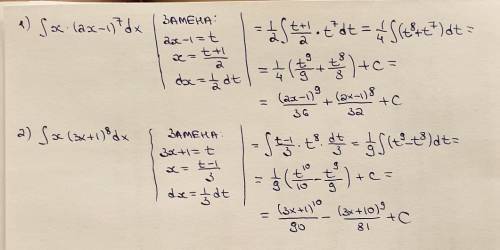 1) ∫x·(2x-1)⁷dx | ЗАМЕНА: 2x-1=t x=(t+1)/2 dx=1/2 dt | = 1/2∫(t+1)/2 · t⁷dt = 1/4∫(t⁸+t⁷)dt =
= 1/4(t⁹/9 + t⁸/8) + C =
= (2x-1)⁹/36 + (2x-1)⁸/32 + C
2) ∫x(3x+1)⁸dx | ЗАМЕНА: 3x+1=t x=(t-1)/3 dx=1/3 dt | = ∫(t-1)/3 · t⁸ · dt/3 = 1/9∫(t⁹-t⁸)dt =
= 1/9(t¹⁰/10 - t⁹/9) + C =
= (3x+1)¹⁰/90 - (3x+10)⁹/81 + C